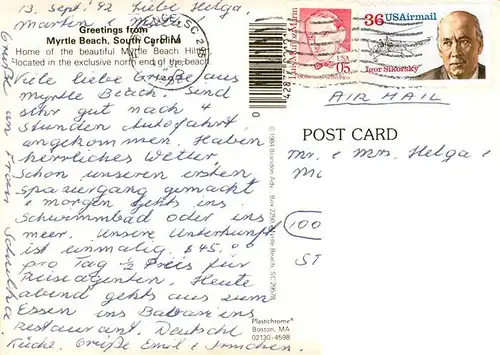 13. Sept. 92 Liebe Helga,
Marten
Greetings from
Myrtle Beach, South Carolina
Home of the beautiful Myrtle Beach Hilton
located in the exclusive north end of the beach.
Viele liebe Grüße aus
Myrtle Beach. Sind
sehr gut nach 4
Stunden Autofahrt
angekommen. Haben
herrliches Wetter,
schon unseren ersten
Spaziergang gemacht
& morgen gehts ins
Schwimmbad oder ins
Meer. Unsere Unterkunft
ist einmalig. $45.00
pro Tag ½ Preis für
Reiseagenten. Heute
abend gehts aus zum
Essen ins
Restaurant. Deutsche
Küche. Grüße Emil &
Grüße an Frau
USA
05
36 USAirmail
Igor Sikorsky
AIR MAIL
POST CARD
Mr. & Mrs. Helga &
(100
ST
© 1984 Brandon Adv., Box 2250, Myrtle Beach, SC 29578
Plastichrome®
Boston, MA
02130-4598